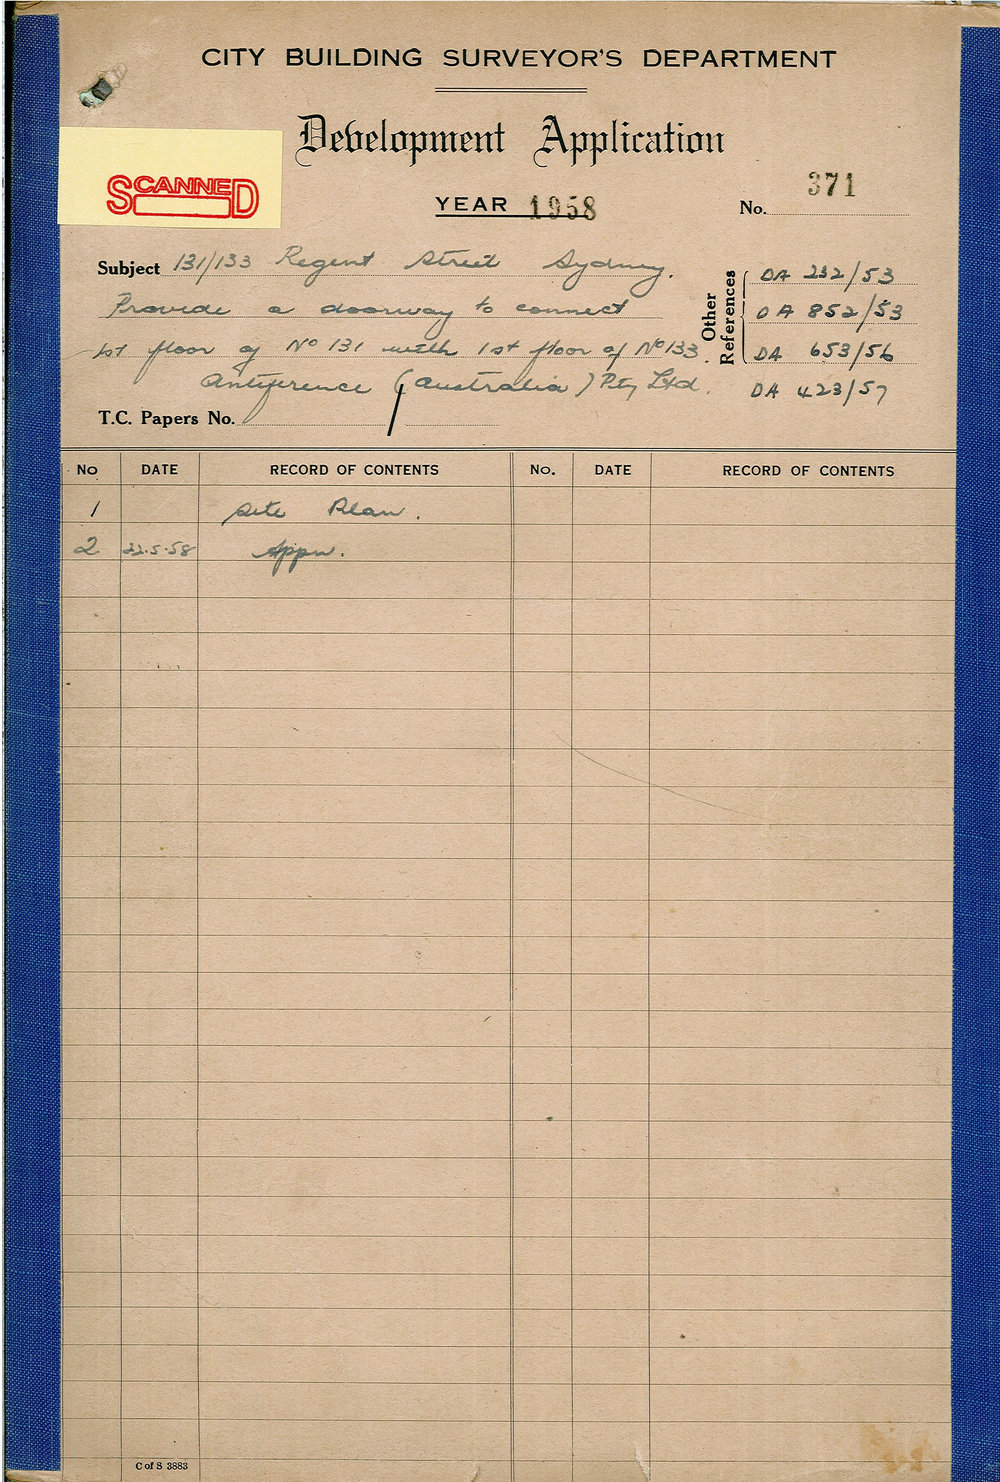 CITY BUILDING SURVEYOR'S DEPARTMENT
Development Application
SCANNED
YEAR 1958
No. 371
Subject 131/133 Regent Street Sydney.
Provide a doorway to connect
1st floor of No 131 with 1st floor of No 133.
Antiference (Australia) Pty Ltd.
Other References
DA 232/53
DA 852/53
DA 653/56
DA 423/57
T.C. Papers No.
No DATE RECORD OF CONTENTS No. DATE RECORD OF CONTENTS
1 Site Plan.
2 22.5.58 Appn.
C of S 3883